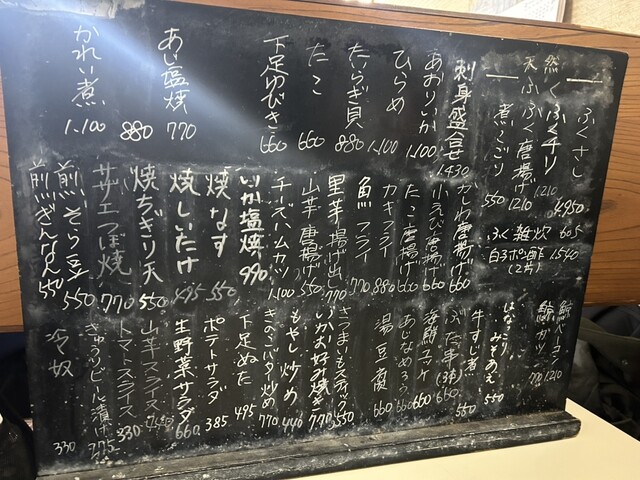 天然ふく
ふくさし 4,950
ふくチリ 1,210
ふく唐揚げ 1210
煮こごり 550
ふく雑炊 605
白子ポン酢(2ケ) 1,540
刺身盛合せ 1,430
あおりいか 1,100
ひらめ 1,100
たいらぎ貝 880
たこ 660
下足ゆびき 660
あじ塩焼 770
880
かれい煮 1,100
かしわ唐揚げ 660
小えび唐揚げ 660
たこ唐揚げ 660
カキフライ 880
魚フライ 770
里芋揚げ出し 770
山芋唐揚げ 550
チーズハムカツ 1,100
いか塩焼 990
焼なす 550
焼しいたけ 495
焼ちぎり天 550
サザエつぼ焼 770
煎そら豆 550
煎ぎんなん 550
鯨ベーコン 1210
鯨カツ 770
みそのあえ 550
牛すじ煮 550
ぶた串(3本) 660
海鮮ユッケ 660
あじなめろう 660
湯豆腐 660
さつまいもスティック 550
いかお好み焼き 770
もやし炒め 440
きのこバタ炒め 770
下足ぬた 495
ポテトサラダ 385
生野菜サラダ 660
山芋スライス
トマトスライス 330
きゅうりビール漬け 275
冷奴 330